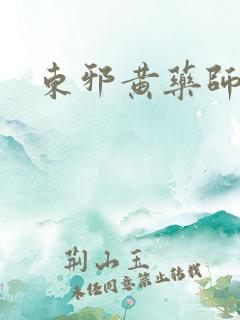 東邪黄藥師
荆山玉
未经同意禁止转载